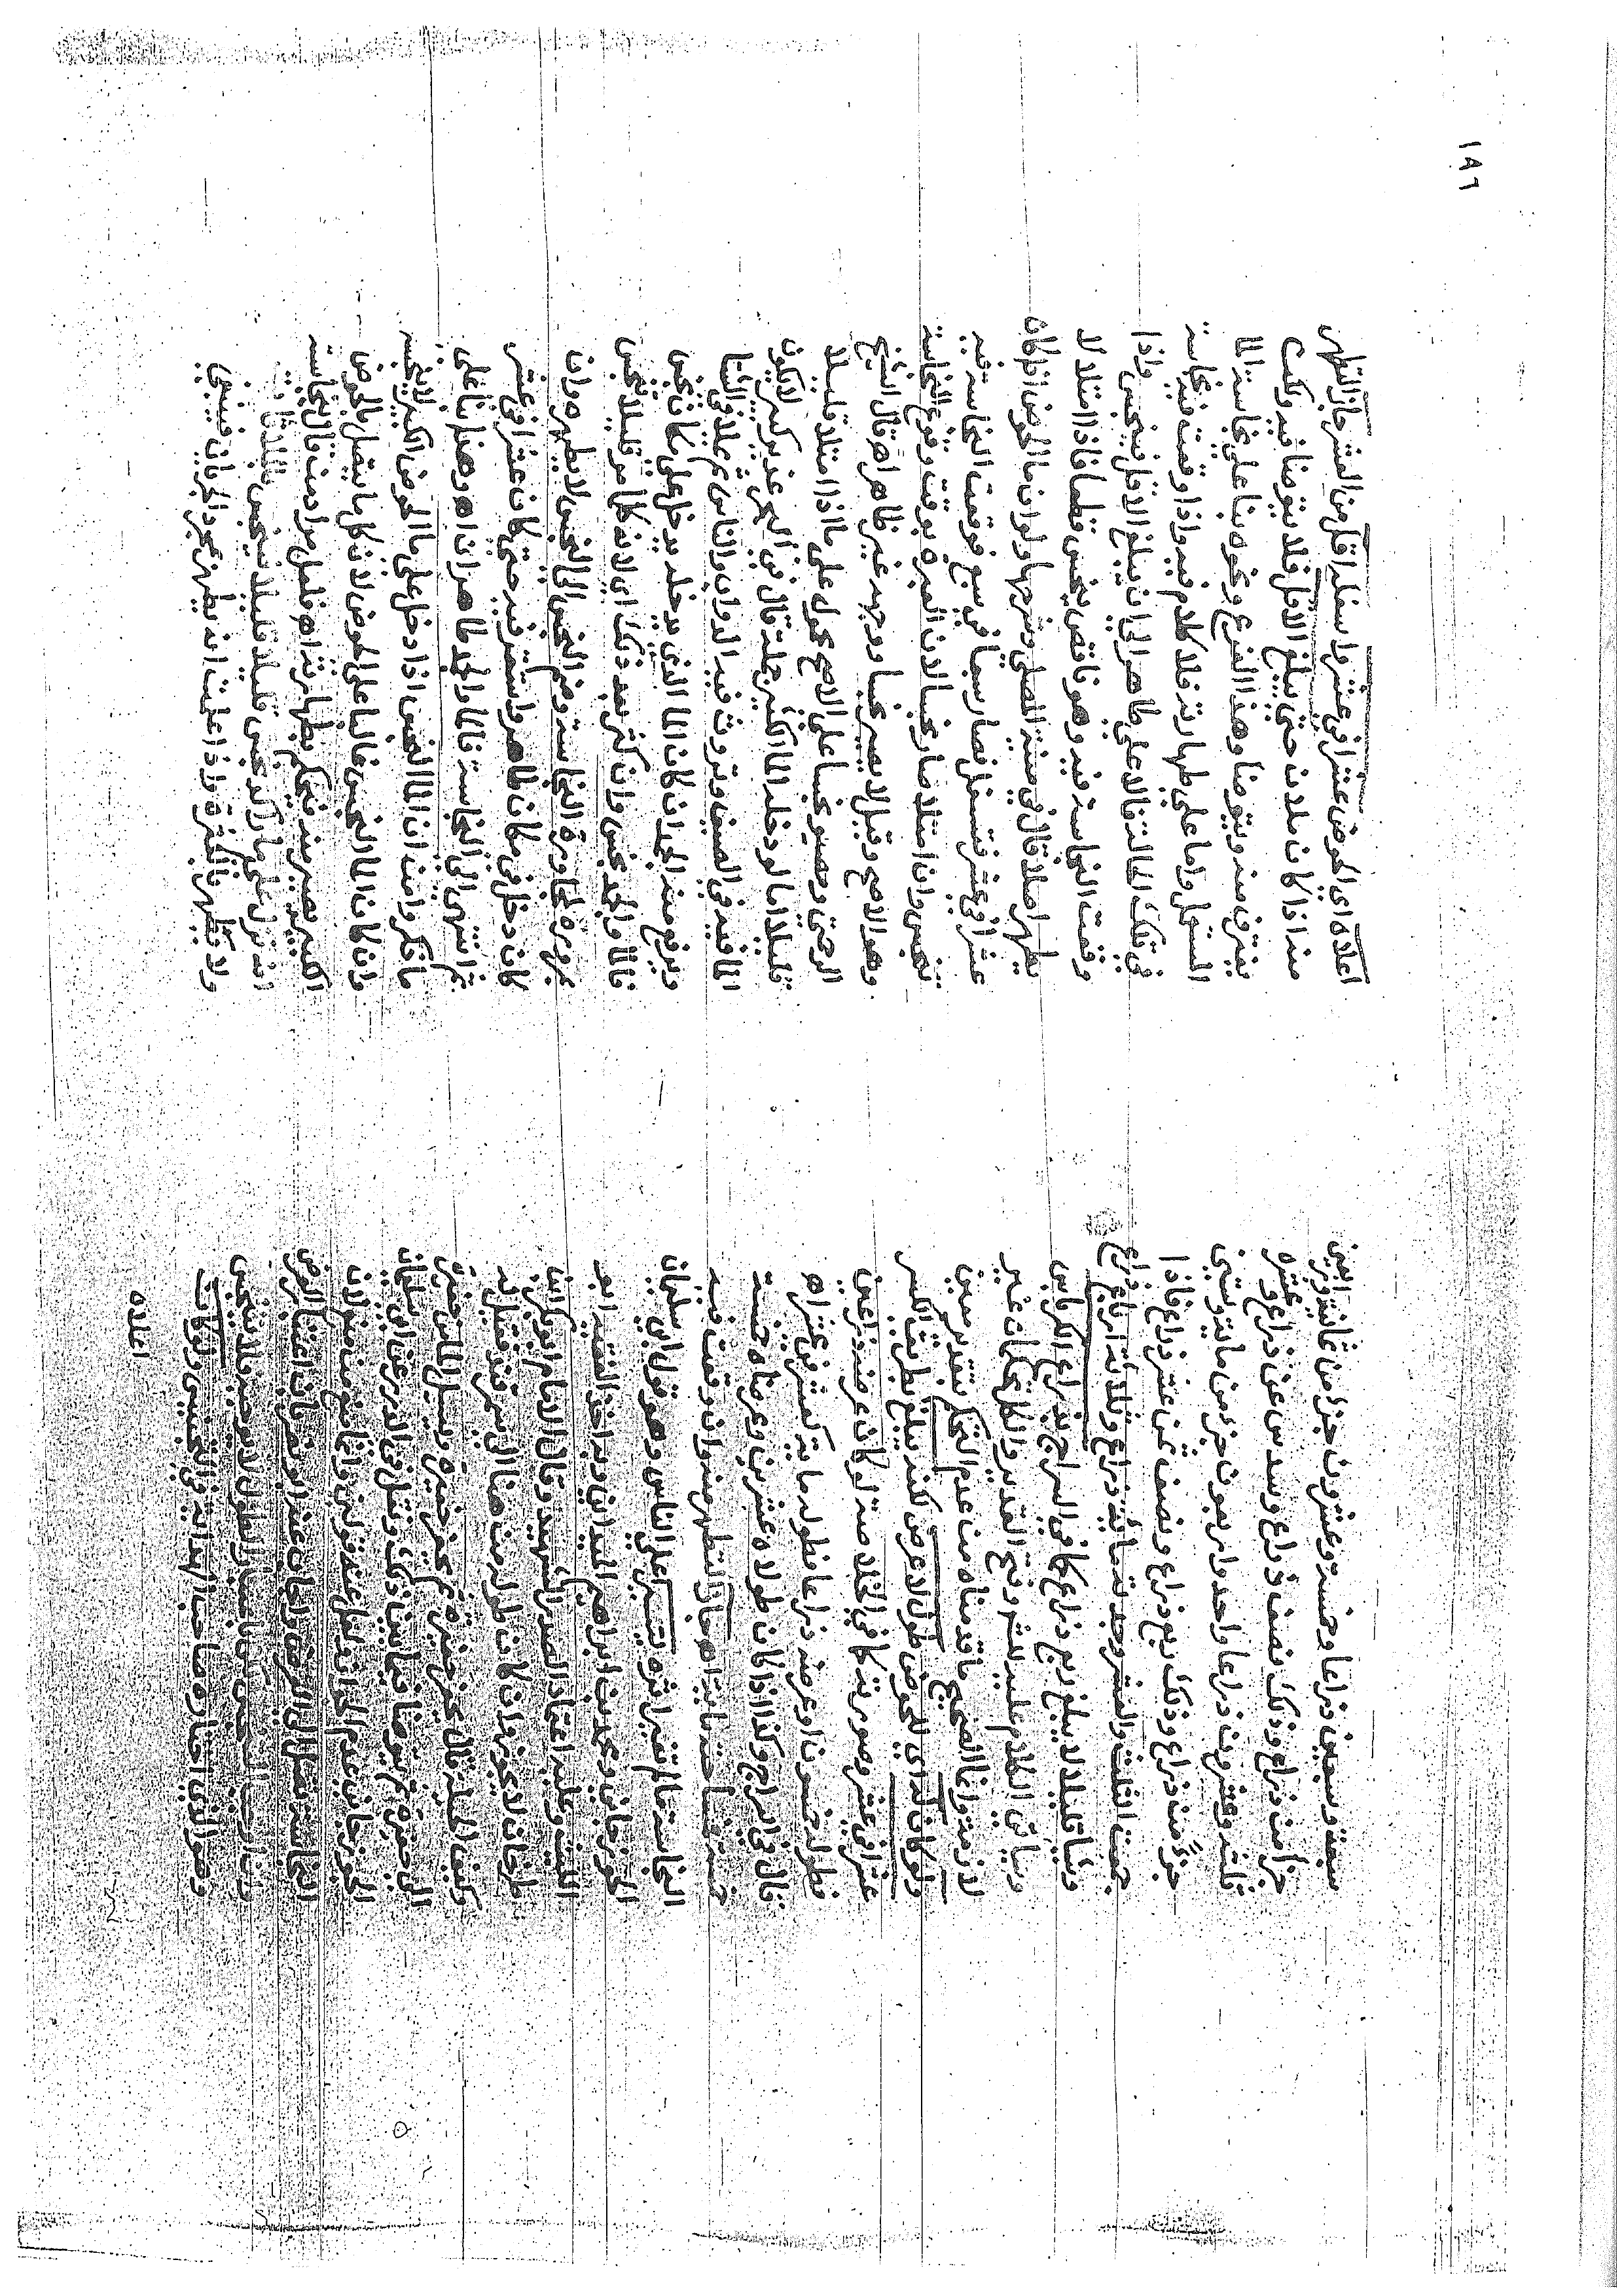 سبعة وسبعين ذراعا وخمسة وعشرون جزأ من ثمانية وربعين
جزأ من ذراع وذلك نصف ذراع وسدس عن ذراع وعشره
ثلثه وعشرون ذراعا واحد واربعون جزء من مايه وستين
جزأ من ذراع وذلك ربع ذراع ونصف ثمن عشر ذراع فاذا
جمعت الثلث والعشر وجدته مائة ذراع وثلاثة ارباع ذراع
وشيا قليلا لا يبلغ ربع ذراع كما في السراج بذراع الكرباس
وسياتي الكلام عليه في التقدير والكل تحكمات غير
لازمة وانما الصحيح ما قدمناه من عدم التحكم بتقدير معين
ولو كان الذي للحوض طول لا عرض لكنه يبلغ بطريق الكسر
عشرا في عشر وصورته كما في الخلاصة لو كان عرضه ذراعين
فطوله خمسون او عرضه ذراعا فطوله مايه كعشر في عشر اه
قال في السراج وكذا اذا كان طوله عشرين وعرضه خمسة
خمسة فمساحته مايه اه جاز التطهر منه وان وقعت فيه
النجاسة ما لم تتغير اثره تيسيرا على الناس وهو قول ابي سليمان
الجوزجاني ومحمد بن ابراهيم الميداني وبه اخذ الفقيه ابو
الليث وعليه اعتماد الصدر الشهيد وقال الامام ابو بكر ابن
طرخان لا يجوز وان كان طوله من هنا الى سمرقند فقيل له
كيف الحيلة قال يحفر حفيرة ثم يحفر نهيرة فيسيل الماء من النهرة
الى حفيرة ثم يتوضا فيما بين ذلك ونقل في الدرر عن ابي سليمان
الجوزجاني عدم الجواز فلعل عنه قولين وانما منع من منع لان
النجاسة تصل الى العرض واجاب عنه ابو نصر بان اعتبار العرض
وان اوجب التنجيس لكن اعتبار الطول لا يوجبه فلا يتنجس
وهو الذي اختاره صاحب الهداية في التجنيس ولو كان
اعلاه
١٨٦
اعلاه اي الحوض عشرا في عشر واسفله اقل من العشر جاز التطهر
منه اذا كان ملان حتى يبلغ الاقل فلا يتوضا فيه ولكن
يغترف منه ويتوضا وهذا الفرع ونحوه بنا على نجاسة الما
المستعمل واما على طهارته فلا كلام فيه واذا وقعت فيه نجاسة
في تلك الحالة فالاعلى طاهر الى ان يبلغ الاقل فينجس واذا
وقعت النجاسة فيه وهو ناقص ينجس قطعا فاذا امتلا لا
يطهر اصلا قال في منية المصلي وشرحها ولو ان ما الحوض اذا كان
عشرا في عشر فتسفل فصار سبعا في سبع فوقعت النجاسة فيه
تنجس وان امتلا صار نجسا لان العبرة بوقت وقوع النجاسة
وهو الاصح وقيل لا يصير نجسا ووجهه غير ظاهر اه قال الشيخ
الرحمتي ومصيره نجسا على الاصح محمول على ما اذا امتلا قليلا
قليلا اما لو دخله الماء الكثير جملة قال في البحر غدير كبير لا يكون
الماء فيه في الصيف وتروث فيه الدواب والناس ثم يملا في الشتا
ويرفع منه الجمد ان كان الما الذي يدخله يدخل على مكان نجس
فالما والجمد نجس وان كثر بعد ذلك اي لانه كلما مر قليلا تنجس
بمروره لمجاورة النجاسة وضم النجس الى النجس لا يطهره وان
كان دخل في مكان طاهر واستقر فيه حتى كان عشرا في عشر
ثم انتهى الى النجاسة فالما والجمد طاهران اه وهذا بنا على
ما ذكروا من ان الما النجس اذا دخل على ما الحوض الكبير لا ينجسه
وان كان الما النجس غالبا على الحوض لان كل ما يتصل بالحوض
الكبير يصير منه فيحكم بطهارته اه فلعل مراد من قال بنجاسته
انه نزل على ما راكد نجس قليلا قليلا فينجس بالملاقاة
ولا يطهر بالكثرة واذا علمت انه يطهر بمجرد الجريان فينبغي